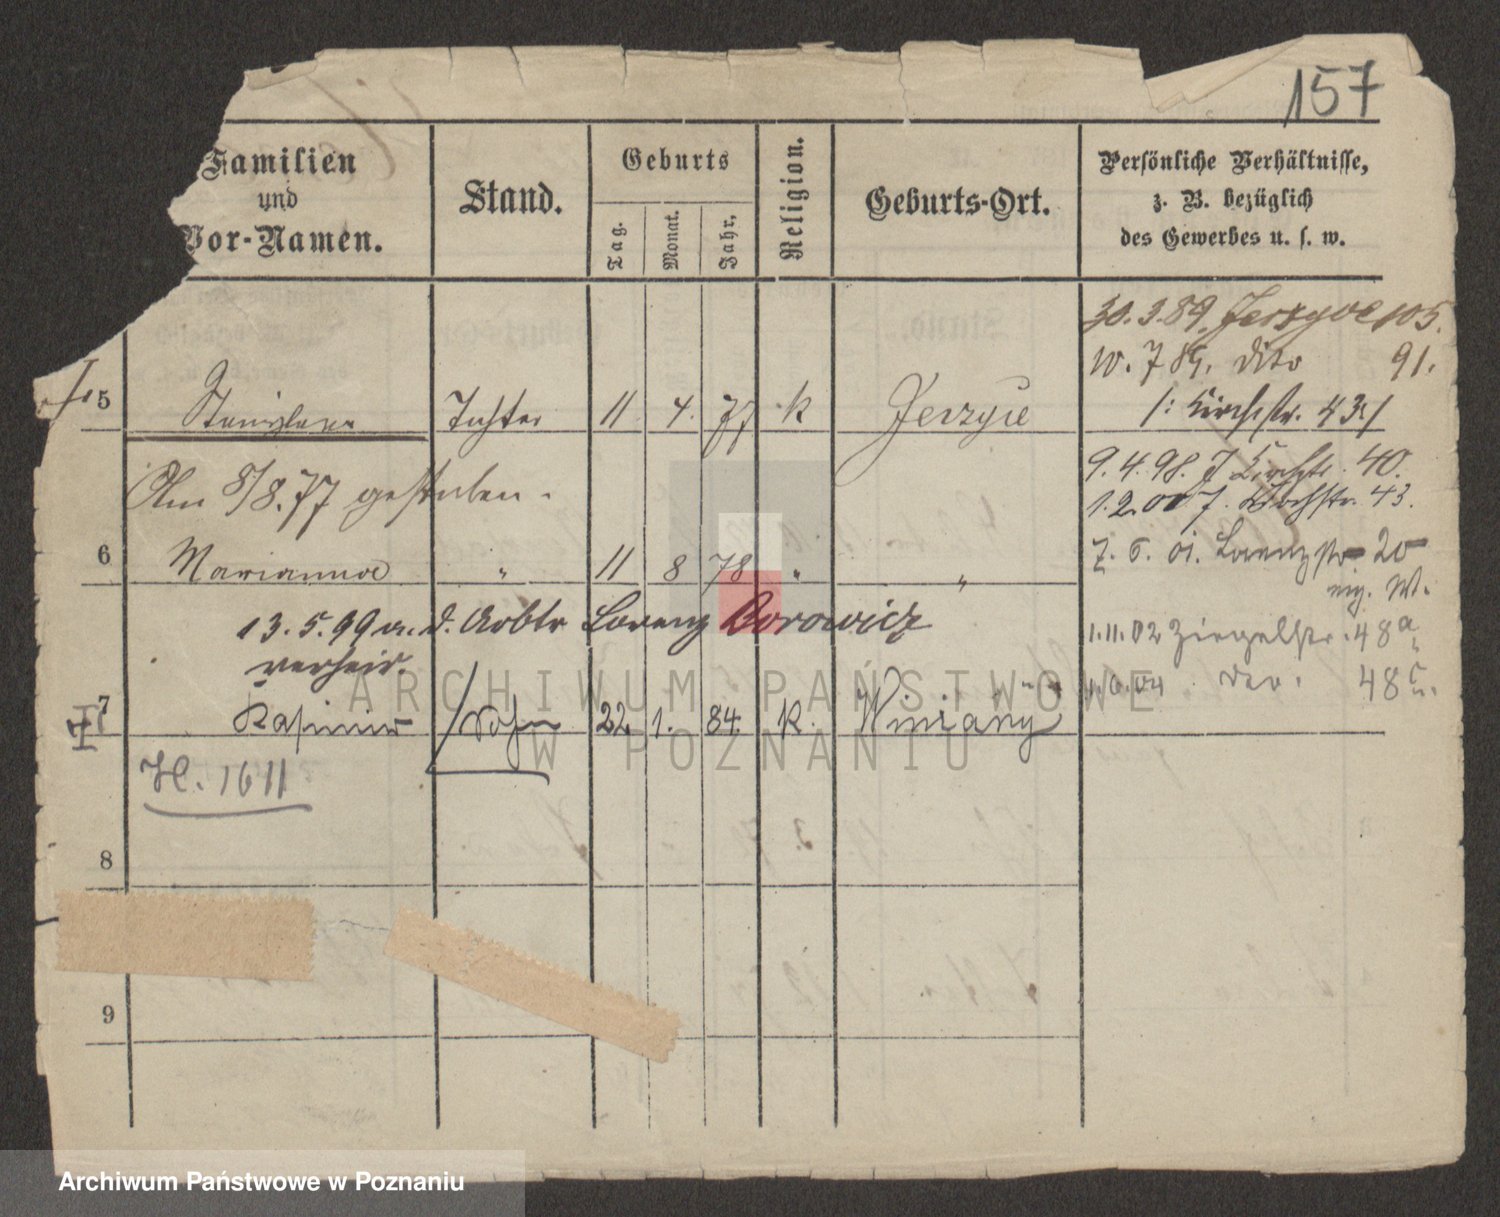 157
Familien
und
Vor-Namen.
Stand.
Geburts
Tag.
Monat.
Jahr.
Religion.
Geburts-Ort.
Persönliche Verhältnisse,
z. B. bezüglich
des Gewerbes u. s. w.
30.3.89. Jerzyce 105.
10.7 89. dito 91.
/: Kirchstr. 43 :/
5 Stanislawa Tochter 11 4. 77 k Jerzyce
9.4.98. J. Kirchstr. 40.
1.2.00 J. Kirchstr. 43.
Am 8/8.77 gestorben.
6 Marianna " 11 8 78 " "
7. 6. 01. Lorenzstr 20
eig. W.
13.5.99 m. d. Arbtr Lorenz Borowicz
verheir.
1.11.02 Ziegelstr. 48a
7 Kasimir Sohn 22 1. 84. k. Winiary
48
H. 1611
8
9
ARCHIWUM PAŃSTWOWE
W POZNANIU
Archiwum Państwowe w Poznaniu